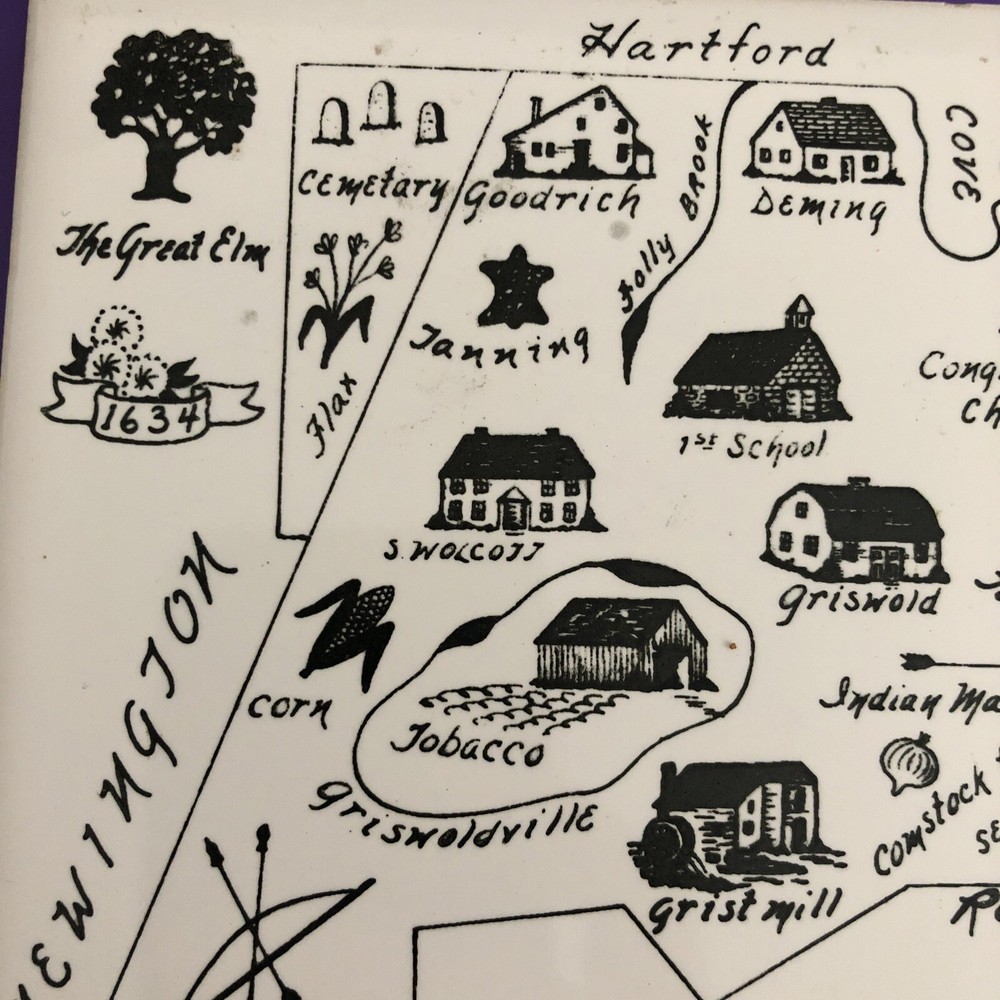 Hartford
The Great Elm
Cemetary
Goodrich
Folly BROOK
DEming
COVE
Tanning
Flax
1634
1st School
Cong
Ch
S. WOLCOTT
Griswold
corn
Tobacco
Griswoldville
Indian Ma
Comstock
SE
grist mill
NEWINGTON